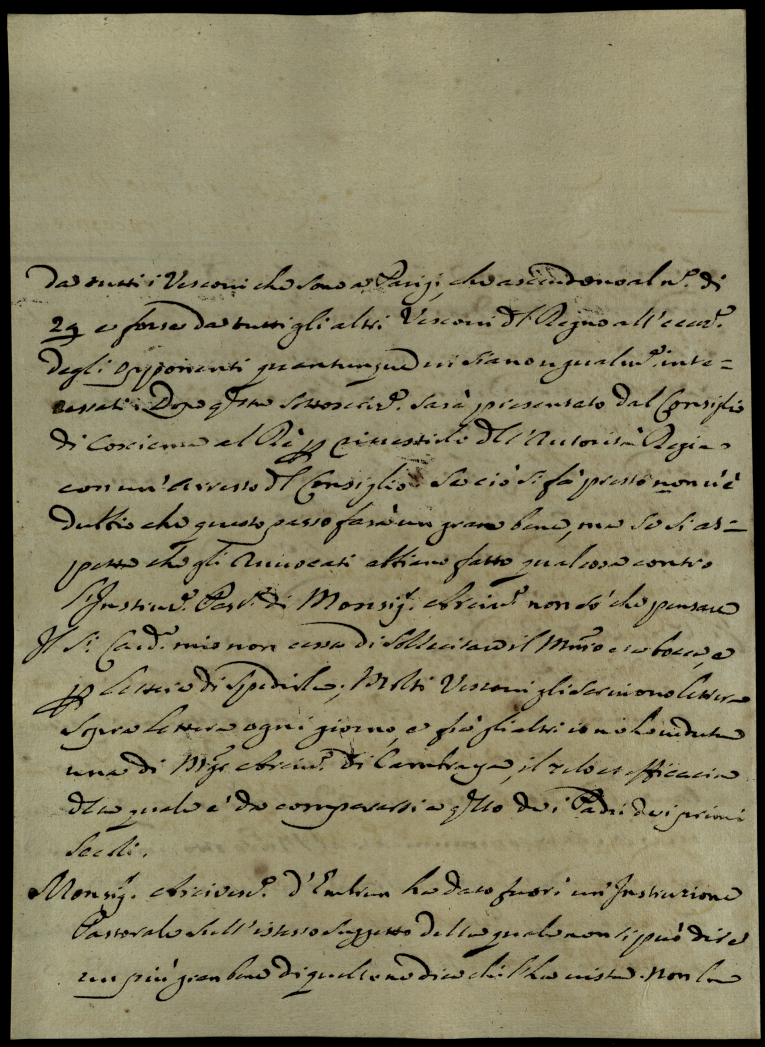 da tutti i Vescovi che sono a Parigi, che ascendono al n.º di
24 e forse da tutti gli altri Vescovi del Regno all'eccez.e
degli opponenti quantunque vi siano ugualm.e inte=
ressati. Dopo q.sta sottoscriz.e sarà presentato dal Consiglio
di Coscienza al Rè p rivestirlo dell'Autorità Regia
con un'Arresto del Consiglio. Se ciò si fà presto non v'è
dubbio che questo passo farà un gran bene, ma se si as=
petta che gli Avvocati abbiano fatto qualcosa contro
l'Instruz.e Past.le di Monsig.r Arciv.o non sò che pensare
Il S.r Card.e mio non cessa di sollecitare il Mnro e a bocca, e
p lettere di spedirla; Molti Vescovi gli scrivono lettera
sopra lettera ogni giorno, e frà gli altri io ne ho veduta
una di Mg.r Arciv.o di Cambraya, il zelo et efficacia
della quale è da compararsi a q.llo dei Padri dei primi
Secoli.
Monsig.r Arcivesc.o d'Embrun ha dato fuori un'Instruzione
Pastorale sull'istesso suggetto della quale non si può dire
un più gran bene di quello ne dica chi l'ha vista. Non la